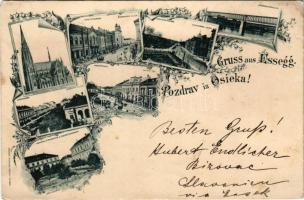 Gruss aus Essegg.
Pozdrav iz Osieka!
Besten Gruß!
Hubert Endlicher
Birovac
Slavonien
via Essek